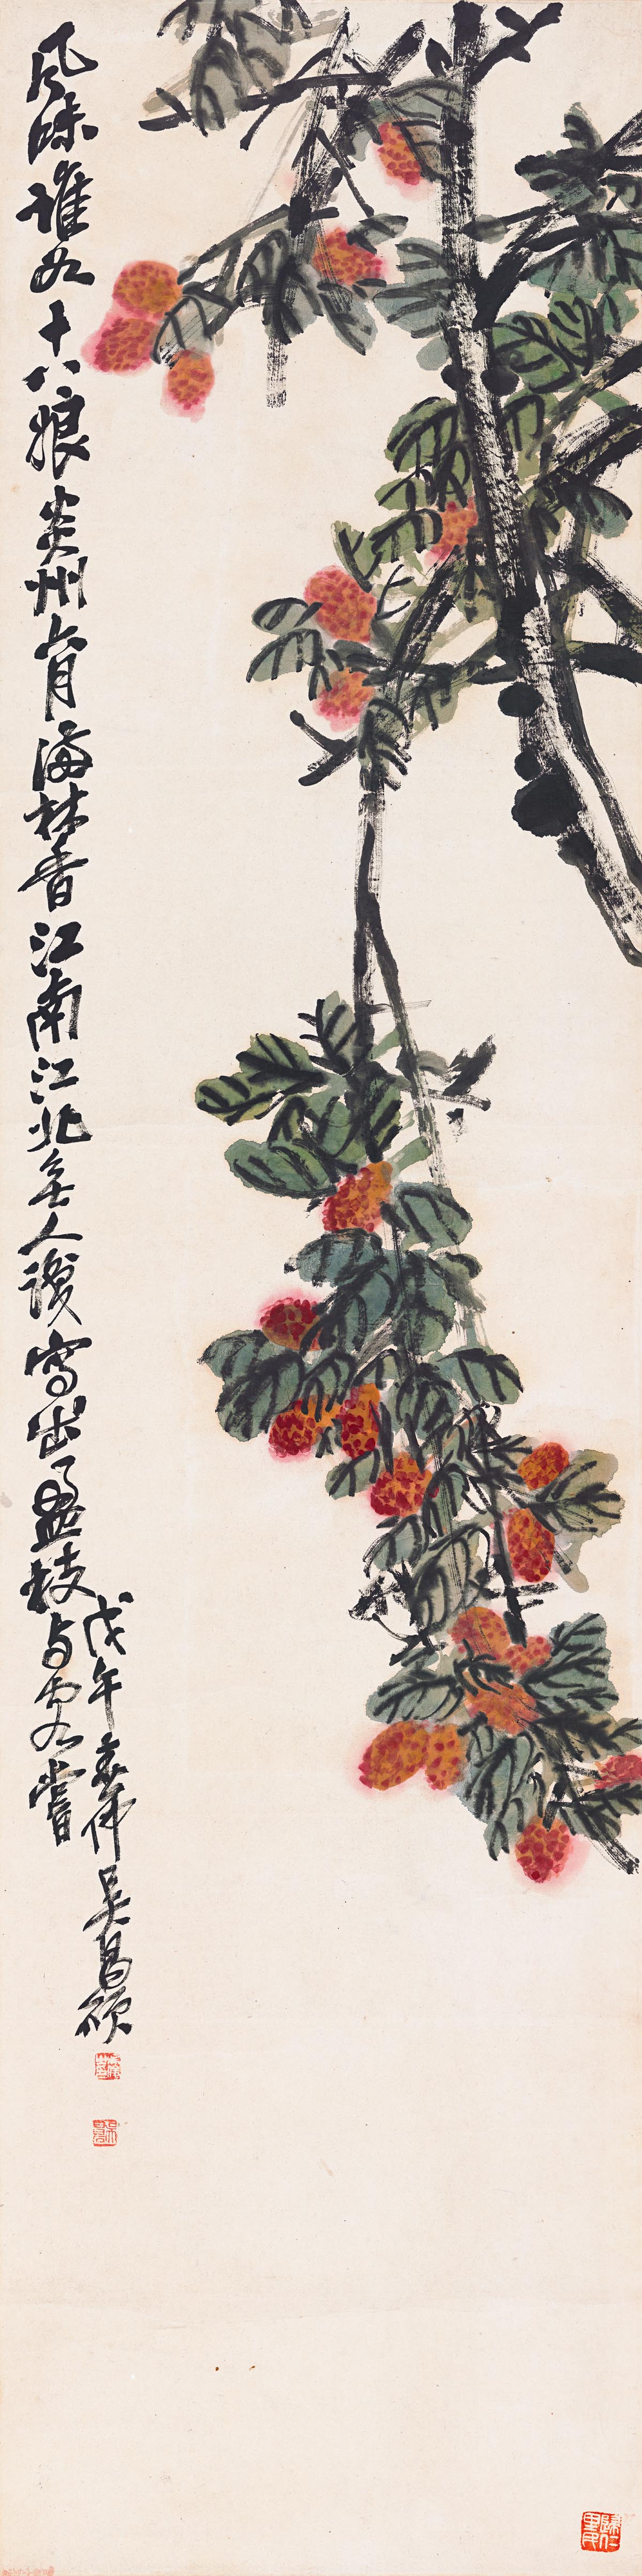 風味誰如十八娘炎州六月海林香江南江北無人識寫出盈枝與客嘗
戊午春仲吳昌碩
歸仁里民